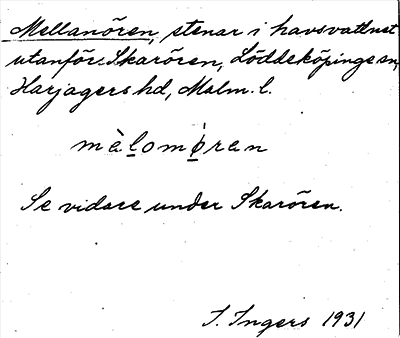 Mellanören, stenar i havsvattnet
utanför Skarören, Löddeköpinge sn,
Harjagers hd, Malm. l.
mèlomǿran
Se vidare under Skarören.
I. Ingers 1931